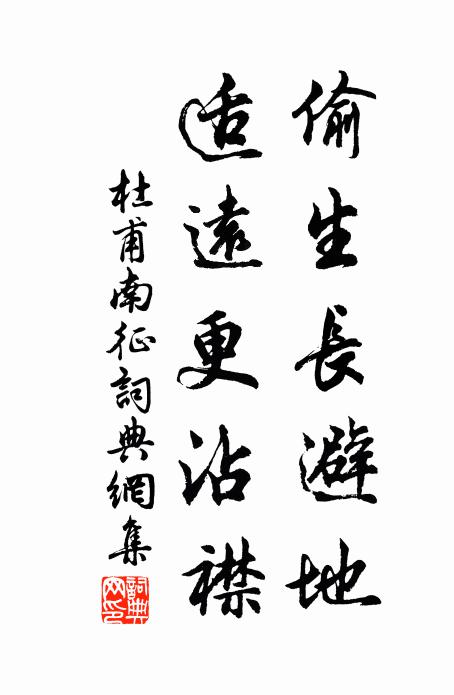 偷生長避地
适遠更沾襟
杜甫南征詞典網集
詞典网印